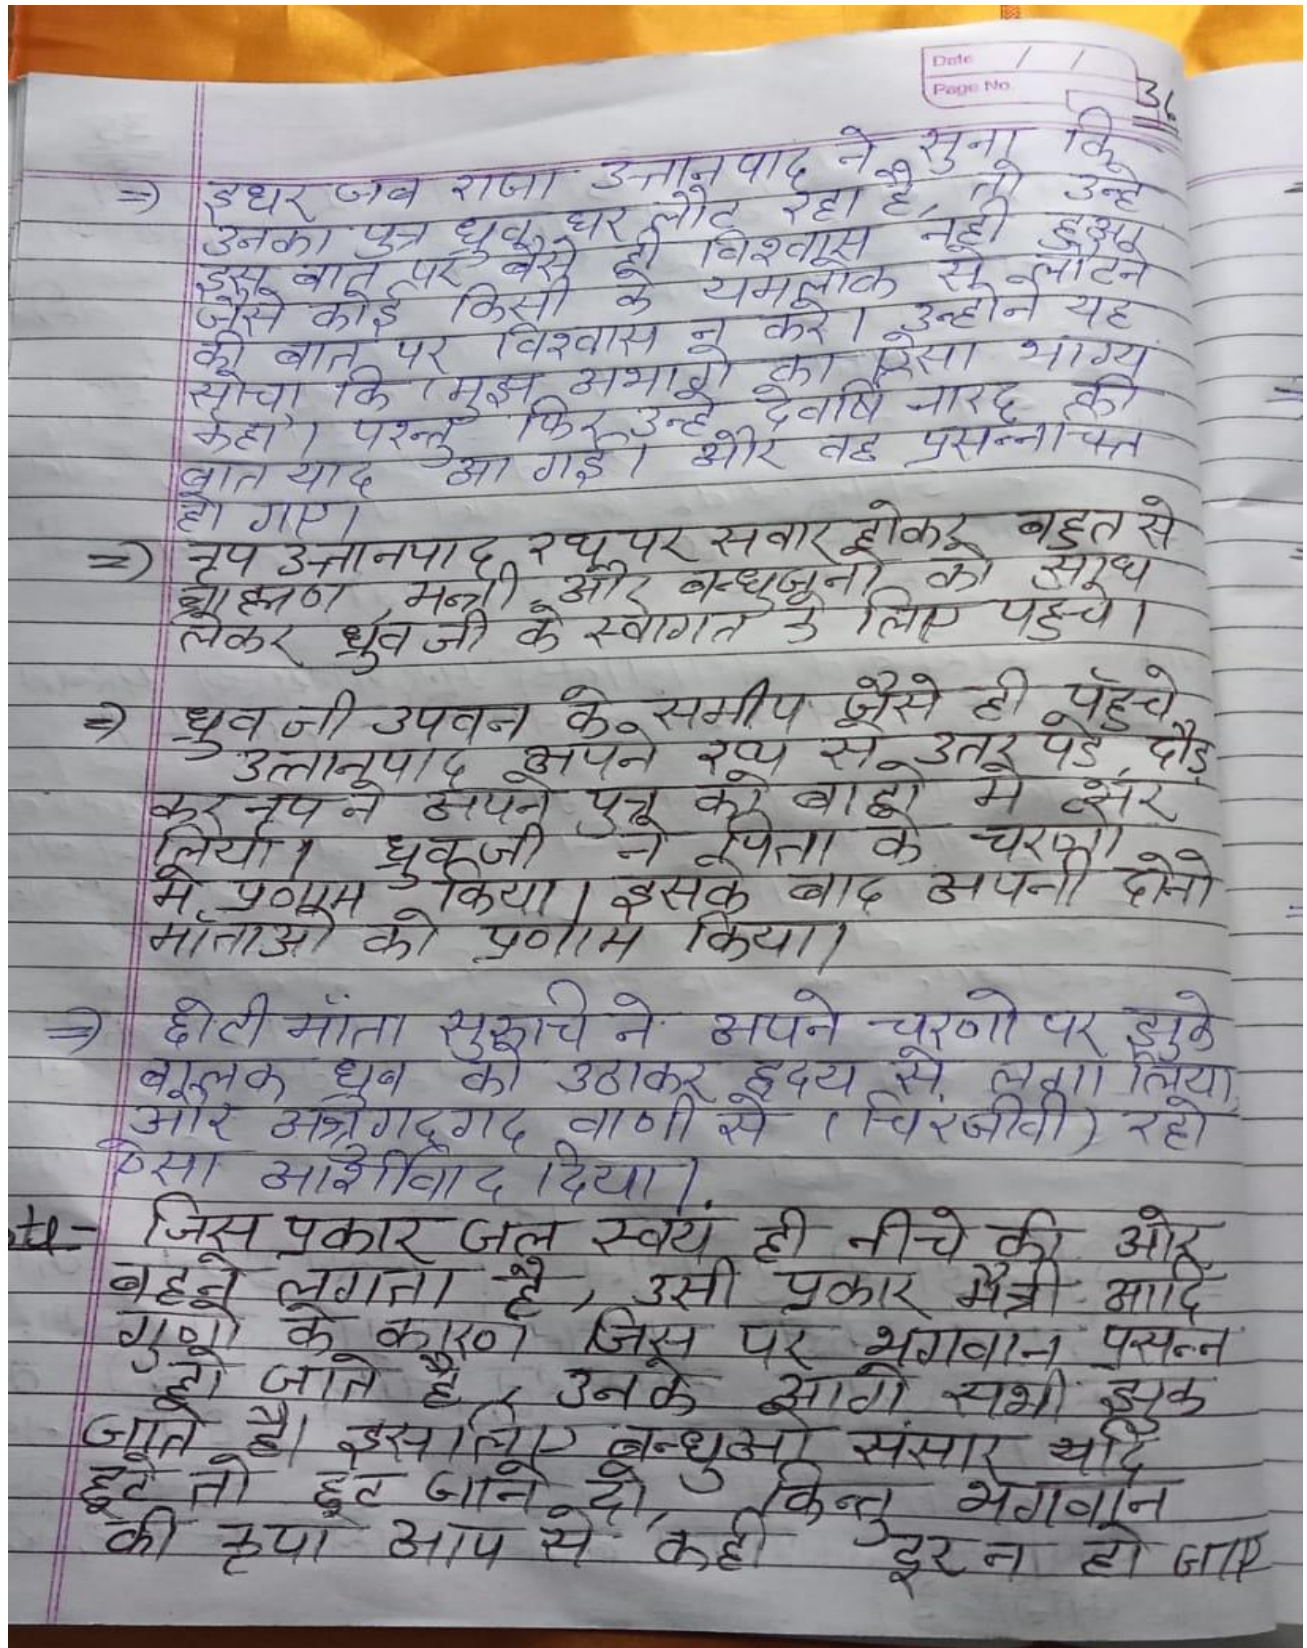 Date / /
Page No.
36
⇒ इधर जब राजा उत्तानपाद ने सुना कि
उनका पुत्र ध्रुव घर लौट रहा है, तो उन्हे
इस बात पर वैसे ही विश्वास नही हुआ
जैसे कोई किसी के यमलोक से लौटने
की बात पर विश्वास न करे। उन्होने यह
सोचा कि 'मुझ अभागे का ऐसा भाग्य
कहा'। परन्तु फिर उन्हे देवर्षि नारद की
बात याद आ गई। और वह प्रसन्नचित्त
हो गए।
⇒ नृप उत्तानपाद रथ पर सवार होकर बहुत से
ब्राह्मण, मन्त्री और बन्धुजनो को साथ
लेकर ध्रुव जी के स्वागत के लिए पहुचे।
⇒ ध्रुव जी उपवन के समीप जैसे ही पॅहुचे
उत्तानपाद अपने रथ से उतर पडे, दौड़
कर नृप ने अपने पुत्र को बाहो मे भर
लिया। ध्रुवजी ने पिता के चरणो
मे प्रणाम किया। इसके बाद अपनी दोनो
मॉताओ को प्रणाम किया।
⇒ छोटी मॉता सुरूचि ने अपने चरणो पर झुके
बालक ध्रुव को उठाकर हृदय से लगा लिया
और अश्रुगद्गद वाणी से (चिरंजीवी) रहो
ऐसा आर्शीवाद दिया।
जिस प्रकार जल स्वयं ही नीचे की ओर
बहने लगता है, उसी प्रकार मैत्री आदि
गुणो के कारण जिस पर भगवान प्रसन्न
हो जाते है, उनके आगे सभी झुक
जाते है। इसलिए बन्धुओ संसार यदि
छूटे तो छूट जाने दो, किन्तु भगवान
की कृपा आप से कही दूर न हो जाए